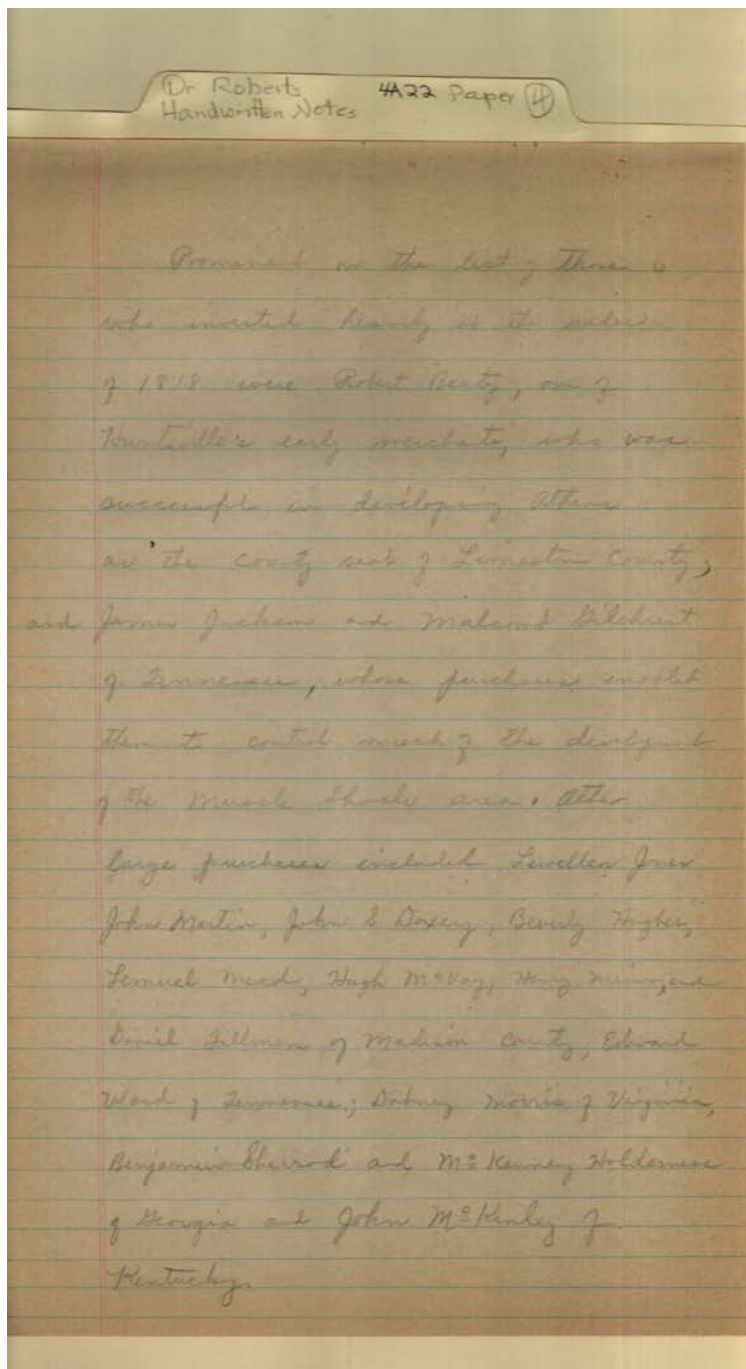 Dr Roberts 4A22 Paper 4
Handwritten Notes
Prominent on the list of those
who invested heavily at the sales
of 1818 were Robert Beaty, one of
Huntsville's early merchants, who was
successful in developing Athens
as the county seat of Limestone County,
and James Jackson and Malcomb Gilchrist
of Tennessee, whose purchases enabled
them to control much of the development
of the Muscle Shoals area. Other
large purchases included Lewellen Jones
John Martin, John S Doxey, Beverly Hughes,
Lemuel Mead, Hugh McVay, Henry and
David of Madison County; Edward
Ward of Tennessee; Dabney Morris of Virginia,
Benjamin Sherrod and McKenney Holderness
of Georgia and John McKinley of
Kentucky.